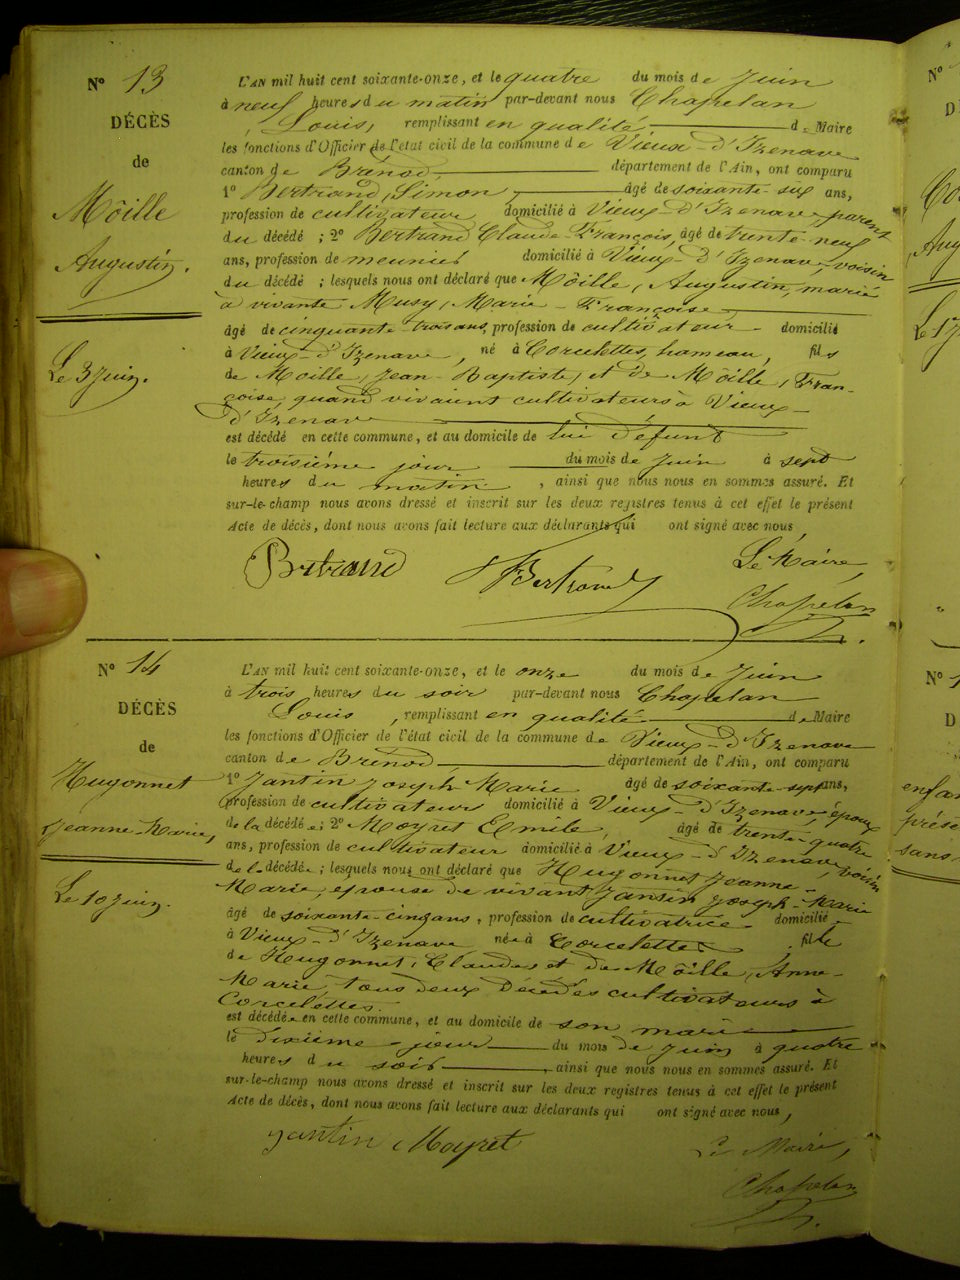 N° 13
DÉCÈS
de
Môille
Augustin.
Le 3 Juin.
L'AN mil huit cent soixante-onze, et le quatre du mois de Juin
à neuf heures du matin par-devant nous Chapelan
Louis, remplissant en qualité de Maire
les fonctions d'Officier de l'état civil de la commune de Vieux-d'Izenave
canton de Brénod, département de l'Ain, ont comparu
1° Bertrand, Simon âgé de soixante six ans,
profession de cultivateur domicilié à Vieux-d'Izenave, parent
du décédé ; 2° Bertrand Claude-François, âgé de trente-neuf
ans, profession de meunier domicilié à Vieux-d'Izenave, voisin
du décédé ; lesquels nous ont déclaré que Môille, Augustin, marié
à vivante Musy, Marie-Françoise
âgé de cinquante-trois ans, profession de cultivateur domicilié
à Vieux-d'Izenave, né à Corcelettes, hameau, fils
de Moille, Jean-Baptiste, et de Môille, Fran-
çoise, quand vivaient cultivateurs à Vieux-
d'Izenave
est décédé en cette commune, et au domicile de lui défunt
le troisième jour du mois de Juin à sept
heures du matin, ainsi que nous nous en sommes assuré. Et
sur-le-champ nous avons dressé et inscrit sur les deux registres tenus à cet effet le présent
Acte de décès, dont nous avons fait lecture aux déclarants qui ont signé avec nous
Bertrand Bertrand Le Maire,
Chapelan
N° 14
DÉCÈS
de
Hugonnet
Jeanne-Marie,
Le 10 Juin.
L'AN mil huit cent soixante-onze, et le onze du mois de Juin
à trois heures du soir par-devant nous Chapelan
Louis, remplissant en qualité de Maire
les fonctions d'Officier de l'état civil de la commune de Vieux-d'Izenave
canton de Brénod département de l'Ain, ont comparu
1° Jantin Joseph Marie âgé de soixante-sept ans,
profession de cultivateur domicilié à Vieux-d'Izenave, époux
de la décédée ; 2° Moyret Emile, âgé de trente-quatre
ans, profession de cultivateur domicilié à Vieux-d'Izenave, voisin
de l. décédée ; lesquels nous ont déclaré que Hugonnet Jeanne-
Marie, épouse de vivant Jantin Joseph-Marie
âgé de soixante-cinq ans, profession de cultivatrice domicilié
à Vieux-d'Izenave née à Corcelettes, fille
de Hugonnet, Claude et de Môille, Anne-
Marie, tous deux décédés cultivateurs à
Corcelettes.
est décédée en cette commune, et au domicile de son mari
le dixième jour du mois de Juin à quatre
heures du soir, ainsi que nous nous en sommes assuré. Et
sur-le-champ nous avons dressé et inscrit sur les deux registres tenus à cet effet le présent
Acte de décès, dont nous avons fait lecture aux déclarants qui ont signé avec nous,
Jantin Moyret Le Maire,
Chapelan